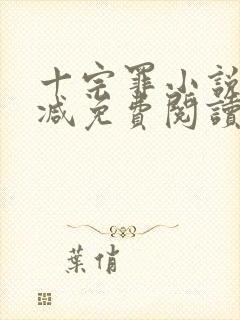 十宗罪小說
減免費閱讀
葉俏